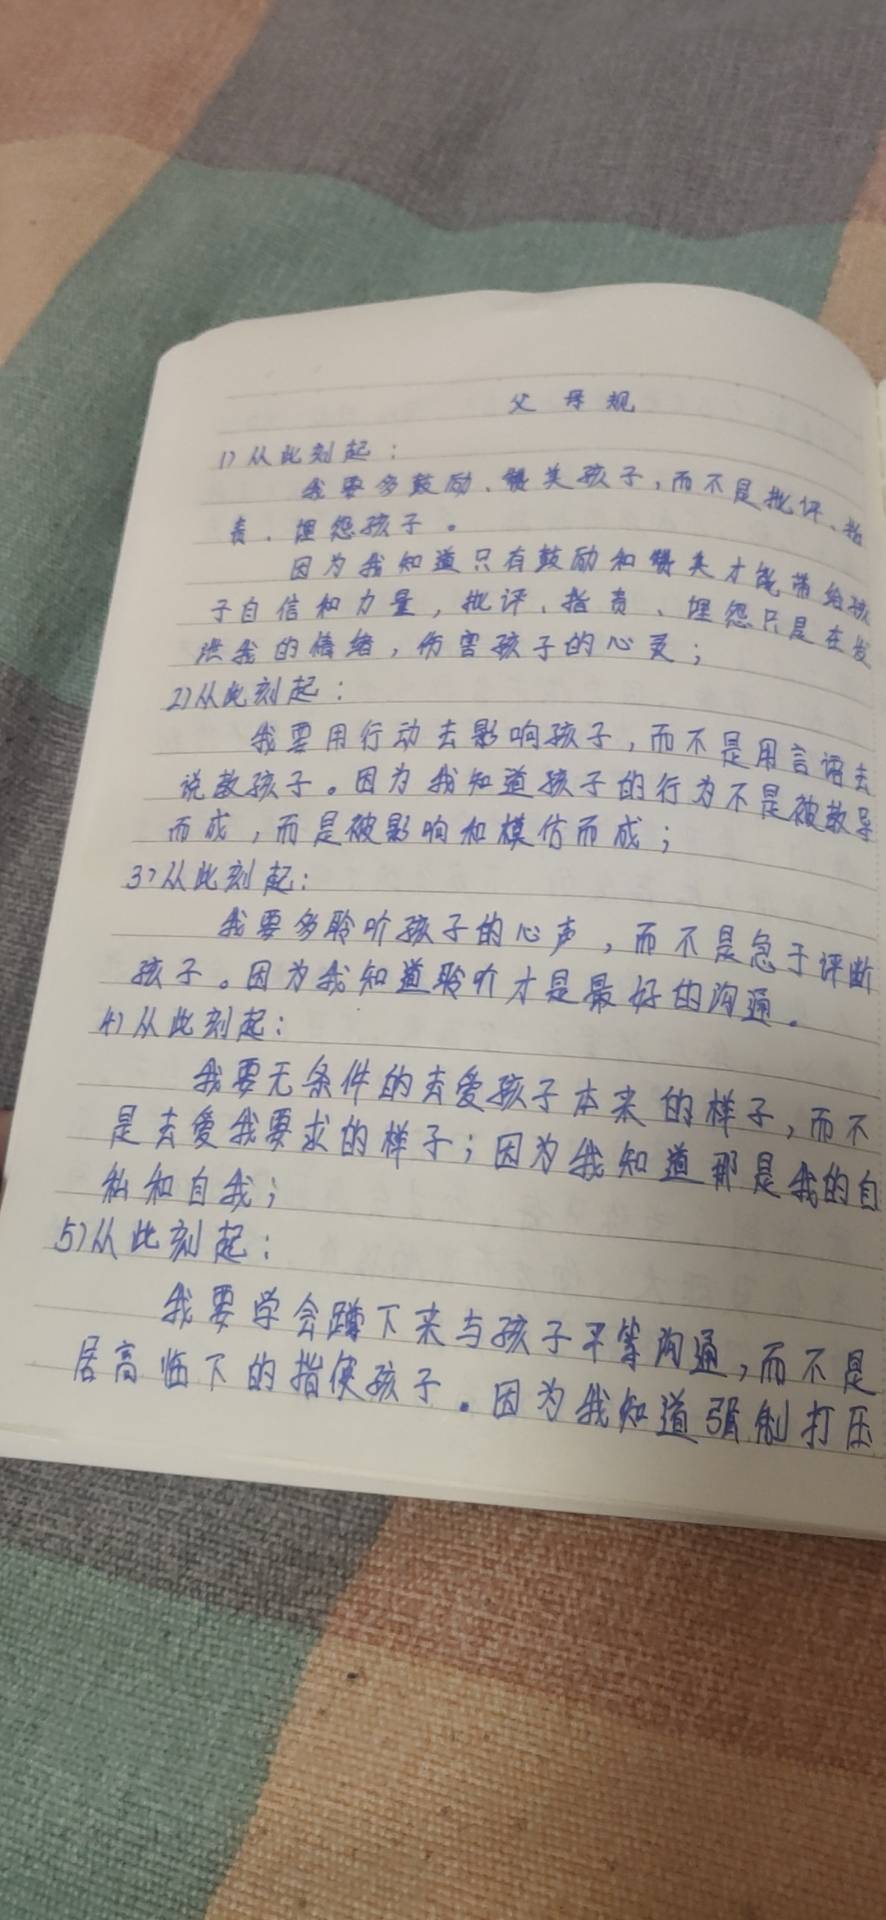 父母规
1)从此刻起：
我要多鼓励、赞美孩子，而不是批评、指
责、埋怨孩子。
因为我知道只有鼓励和赞美才能带给孩
子自信和力量，批评、指责、埋怨只是在发
泄我的情绪，伤害孩子的心灵；
2)从此刻起：
我要用行动去影响孩子，而不是用言语去
说教孩子。因为我知道孩子的行为不是被教导
而成，而是被影响和模仿而成；
3)从此刻起：
我要多聆听孩子的心声，而不是急于评断
孩子。因为我知道聆听才是最好的沟通。
4)从此刻起：
我要无条件的去爱孩子本来的样子，而不
是去爱我要求的样子；因为我知道那是我的自
私和自我；
5)从此刻起：
我要学会蹲下来与孩子平等沟通，而不是
居高临下的指使孩子。因为我知道强制打压